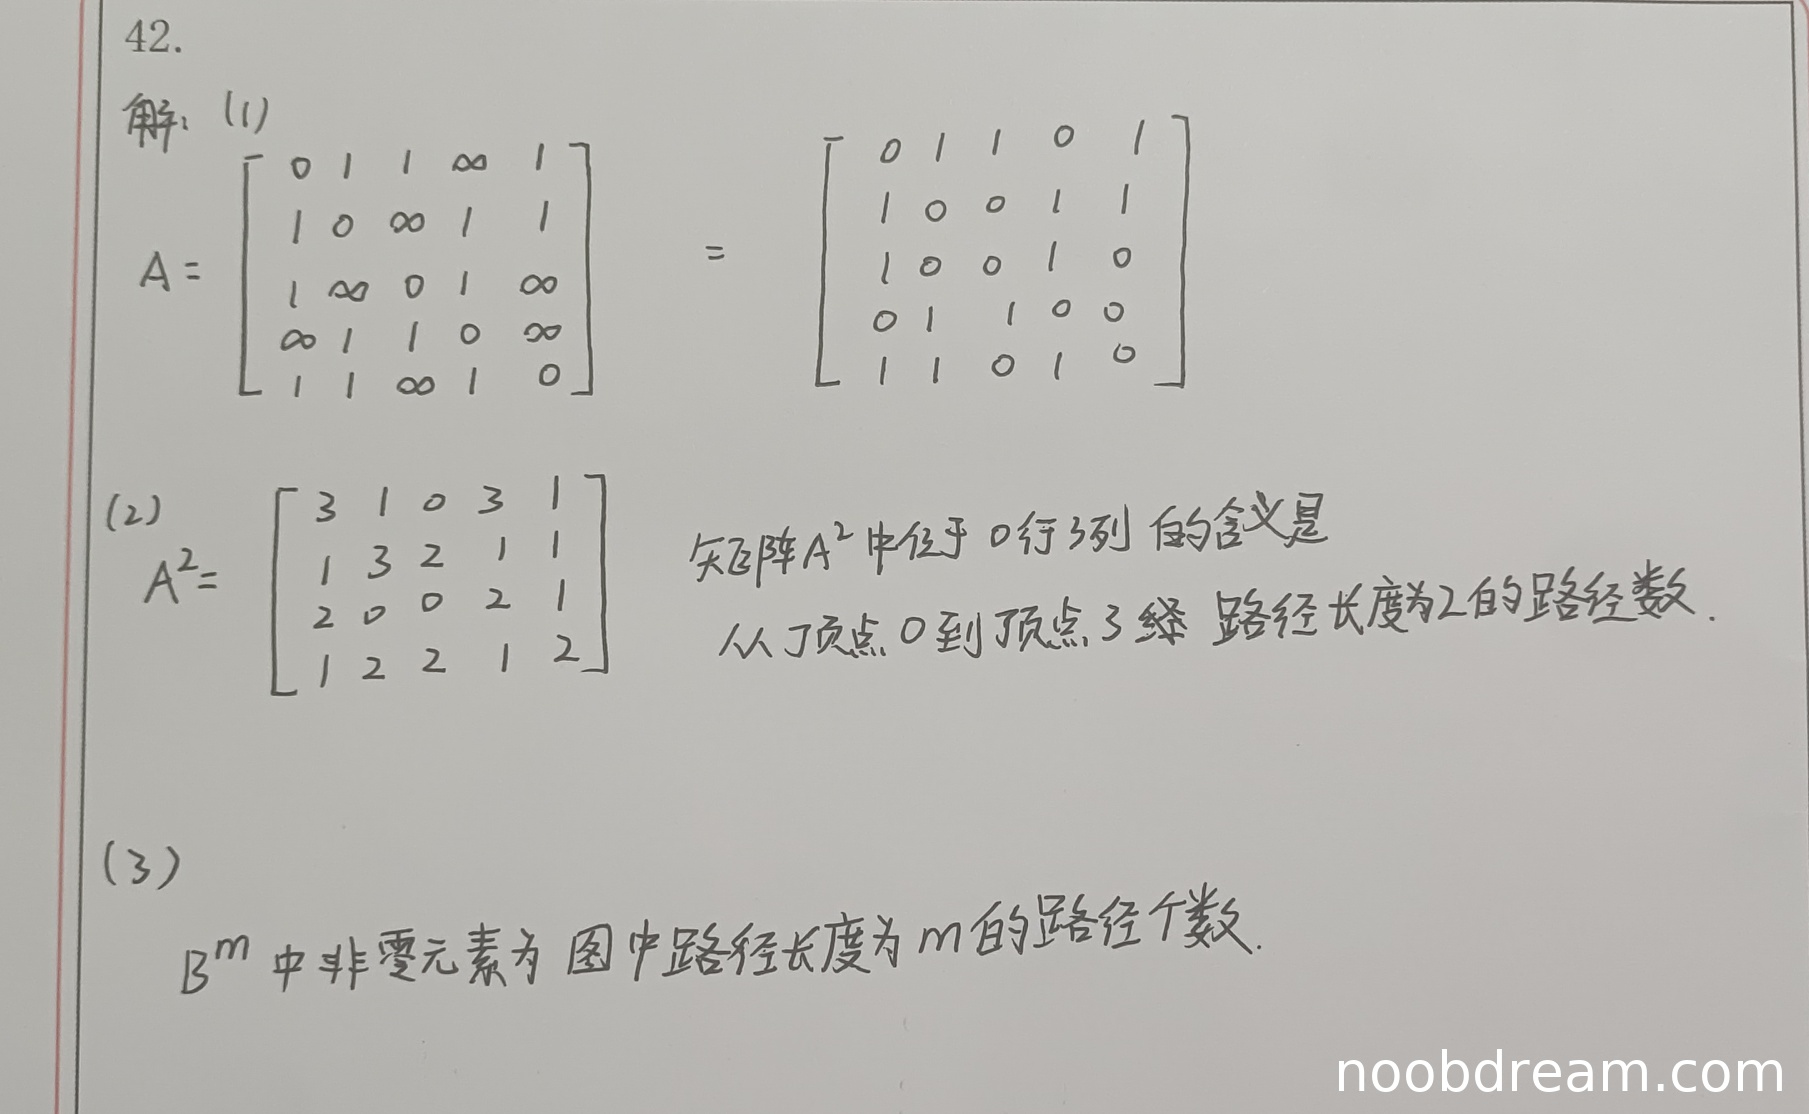 42.
解：(1)
A = [ 0 1 1 ∞ 1 = [ 0 1 1 0 1
1 0 ∞ 1 1 1 0 0 1 1
1 ∞ 0 1 ∞ 1 0 0 1 0
∞ 1 1 0 ∞ 0 1 1 0 0
1 1 ∞ 1 0 ] 1 1 0 1 0 ]
(2)
A² = [ 3 1 0 3 1
1 3 2 1 1
2 0 0 2 1
1 2 2 1 2 ]
矩阵A²中位于0行3列的含义是
从顶点0到顶点3 路径长度为2的路径数.
(3)
Bᵐ中非零元素为图中路径长度为m的路径个数.
noobdream.com